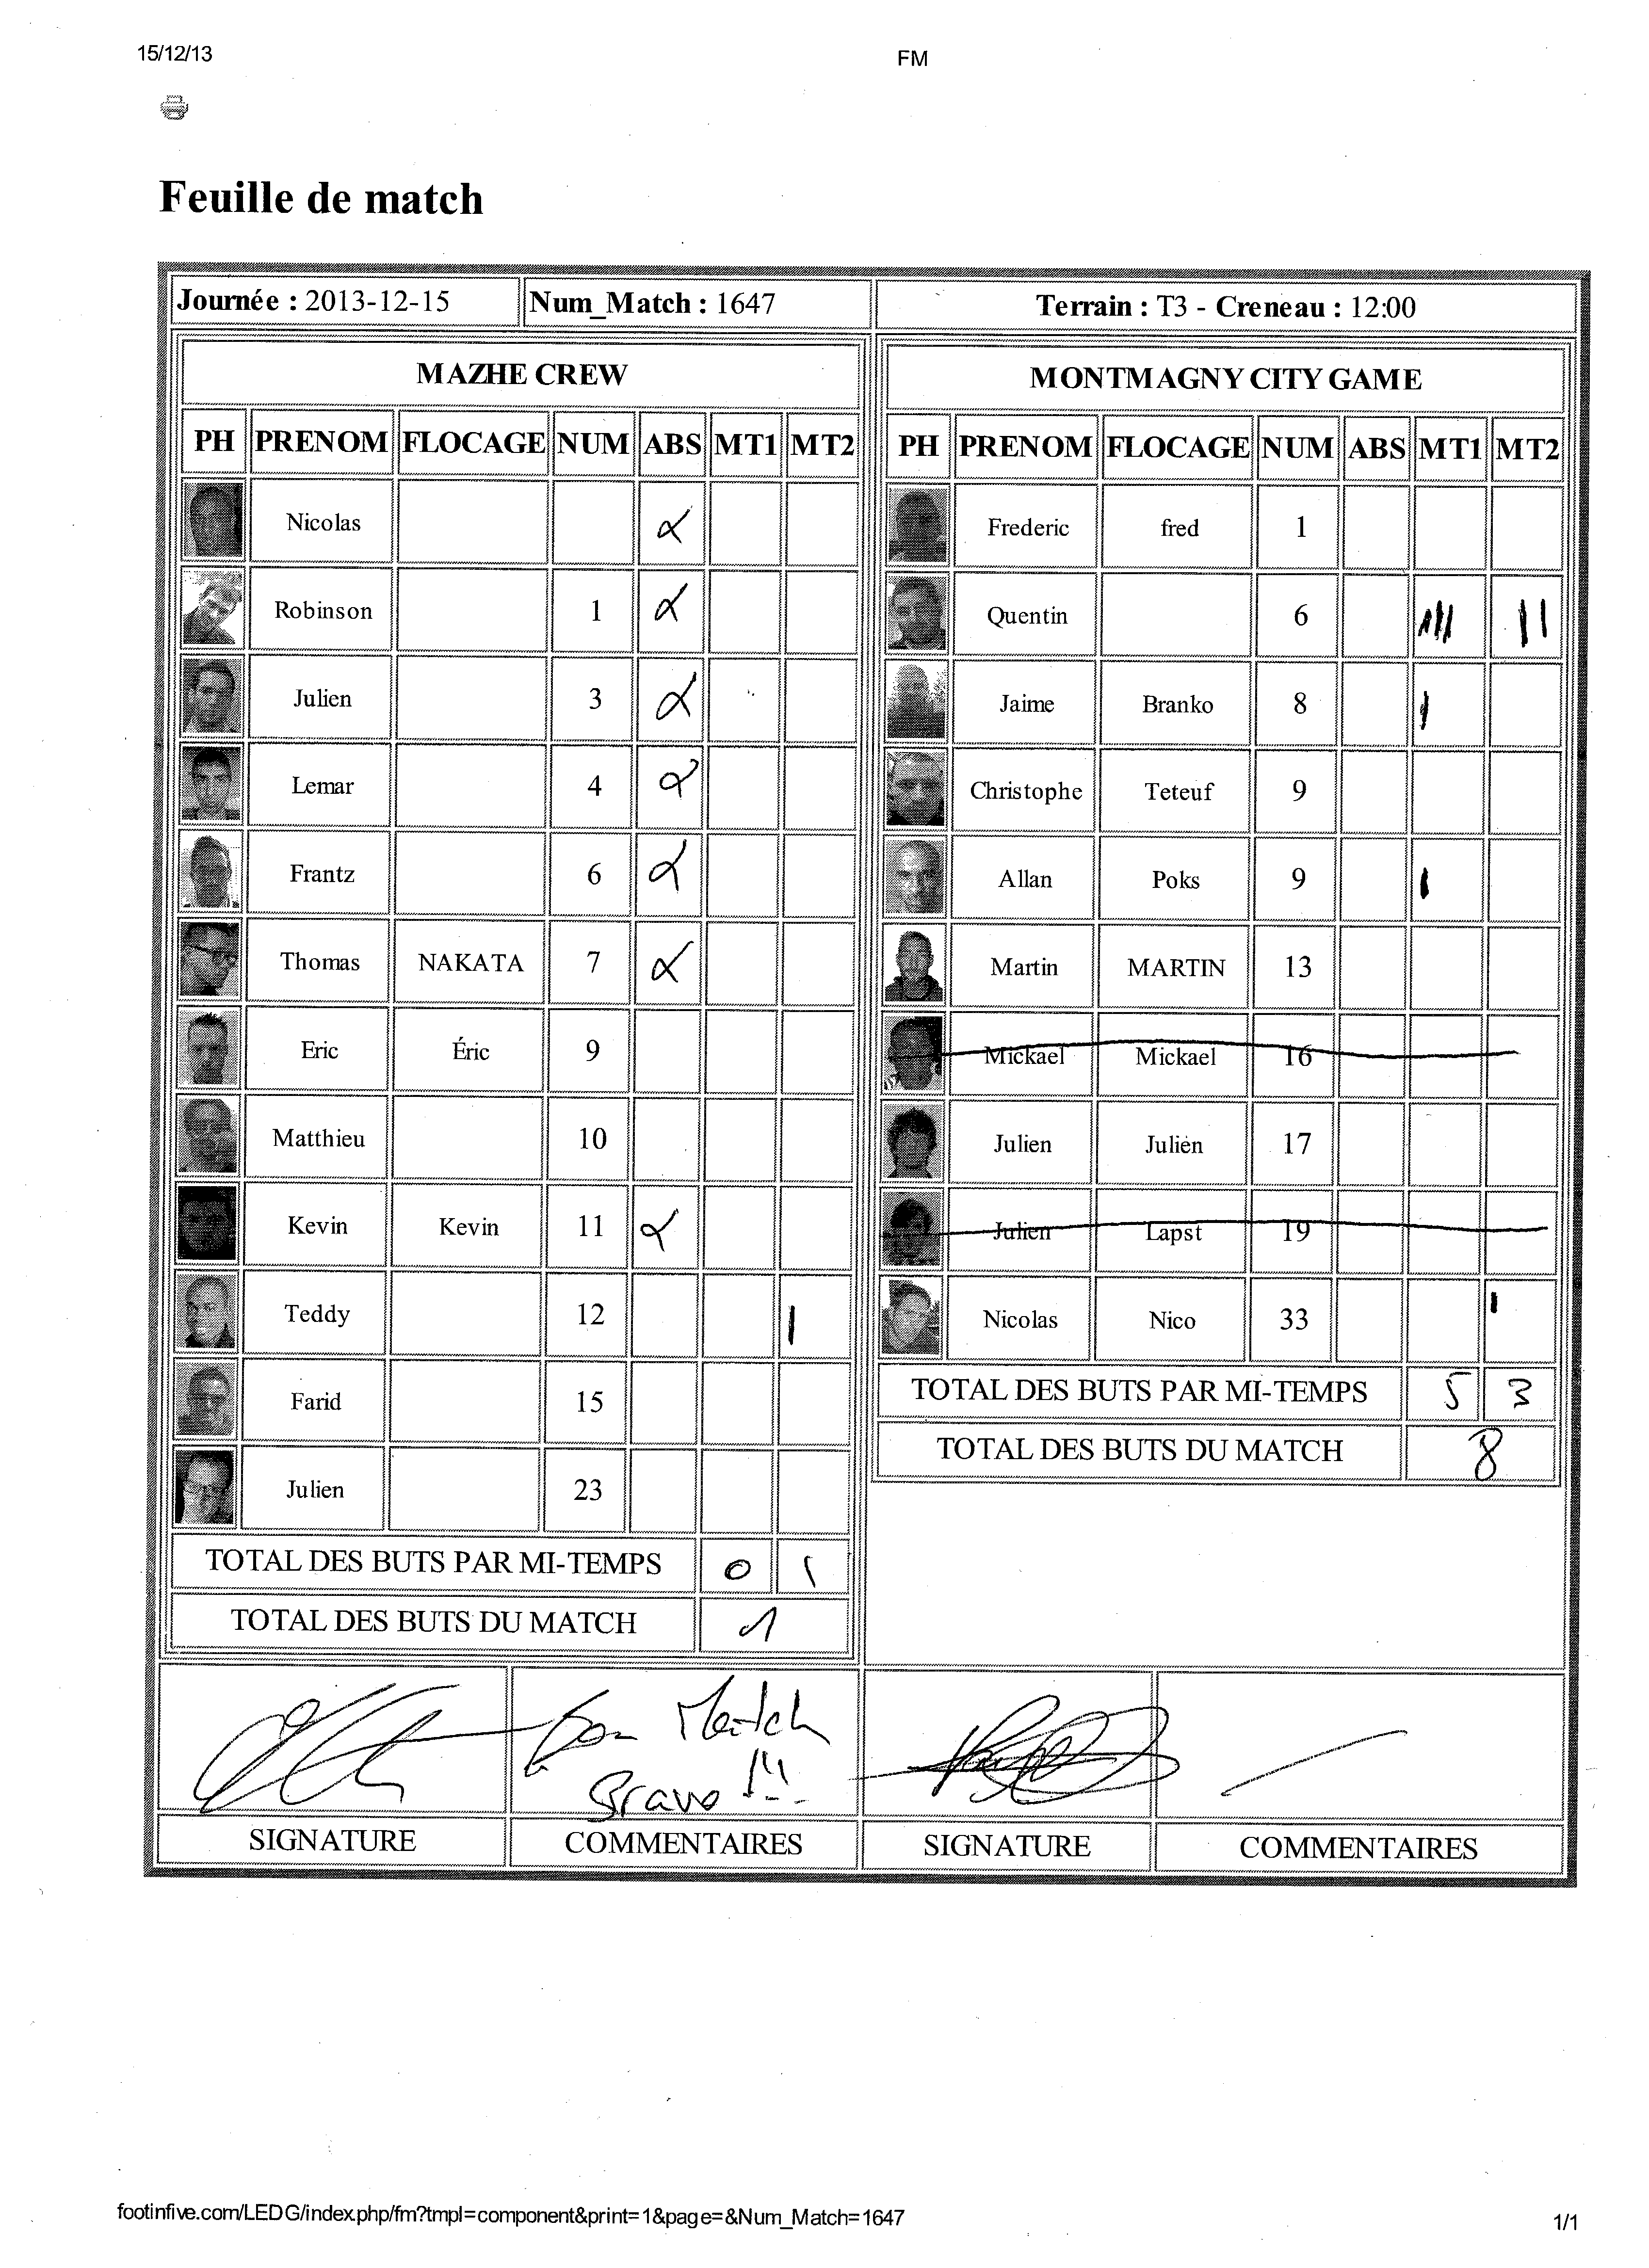 15/12/13 FM
Feuille de match
Journée : 2013-12-15 Num_Match : 1647 Terrain : T3 - Creneau : 12:00
MAZHE CREW
PH PRENOM FLOCAGE NUM ABS MT1 MT2
Nicolas
Robinson 1
Julien 3
Lemar 4
Frantz 6
Thomas NAKATA 7
Eric Éric 9
Matthieu 10
Kevin Kevin 11
Teddy 12
Farid 15
Julien 23
TOTAL DES BUTS PAR MI-TEMPS 0 1
TOTAL DES BUTS DU MATCH 1
MONTMAGNY CITY GAME
PH PRENOM FLOCAGE NUM ABS MT1 MT2
Frederic fred 1
Quentin 6
Jaime Branko 8
Christophe Teteuf 9
Allan Poks 9
Martin MARTIN 13
Mickael Mickael 16
Julien Julien 17
Julien Lapst 19
Nicolas Nico 33
TOTAL DES BUTS PAR MI-TEMPS 5 3
TOTAL DES BUTS DU MATCH 8
Bon Match
Bravo !!!
SIGNATURE COMMENTAIRES SIGNATURE COMMENTAIRES
footinfive.com/LEDG/index.php/fm?tmpl=component&print=1&page=&Num_Match=1647 1/1